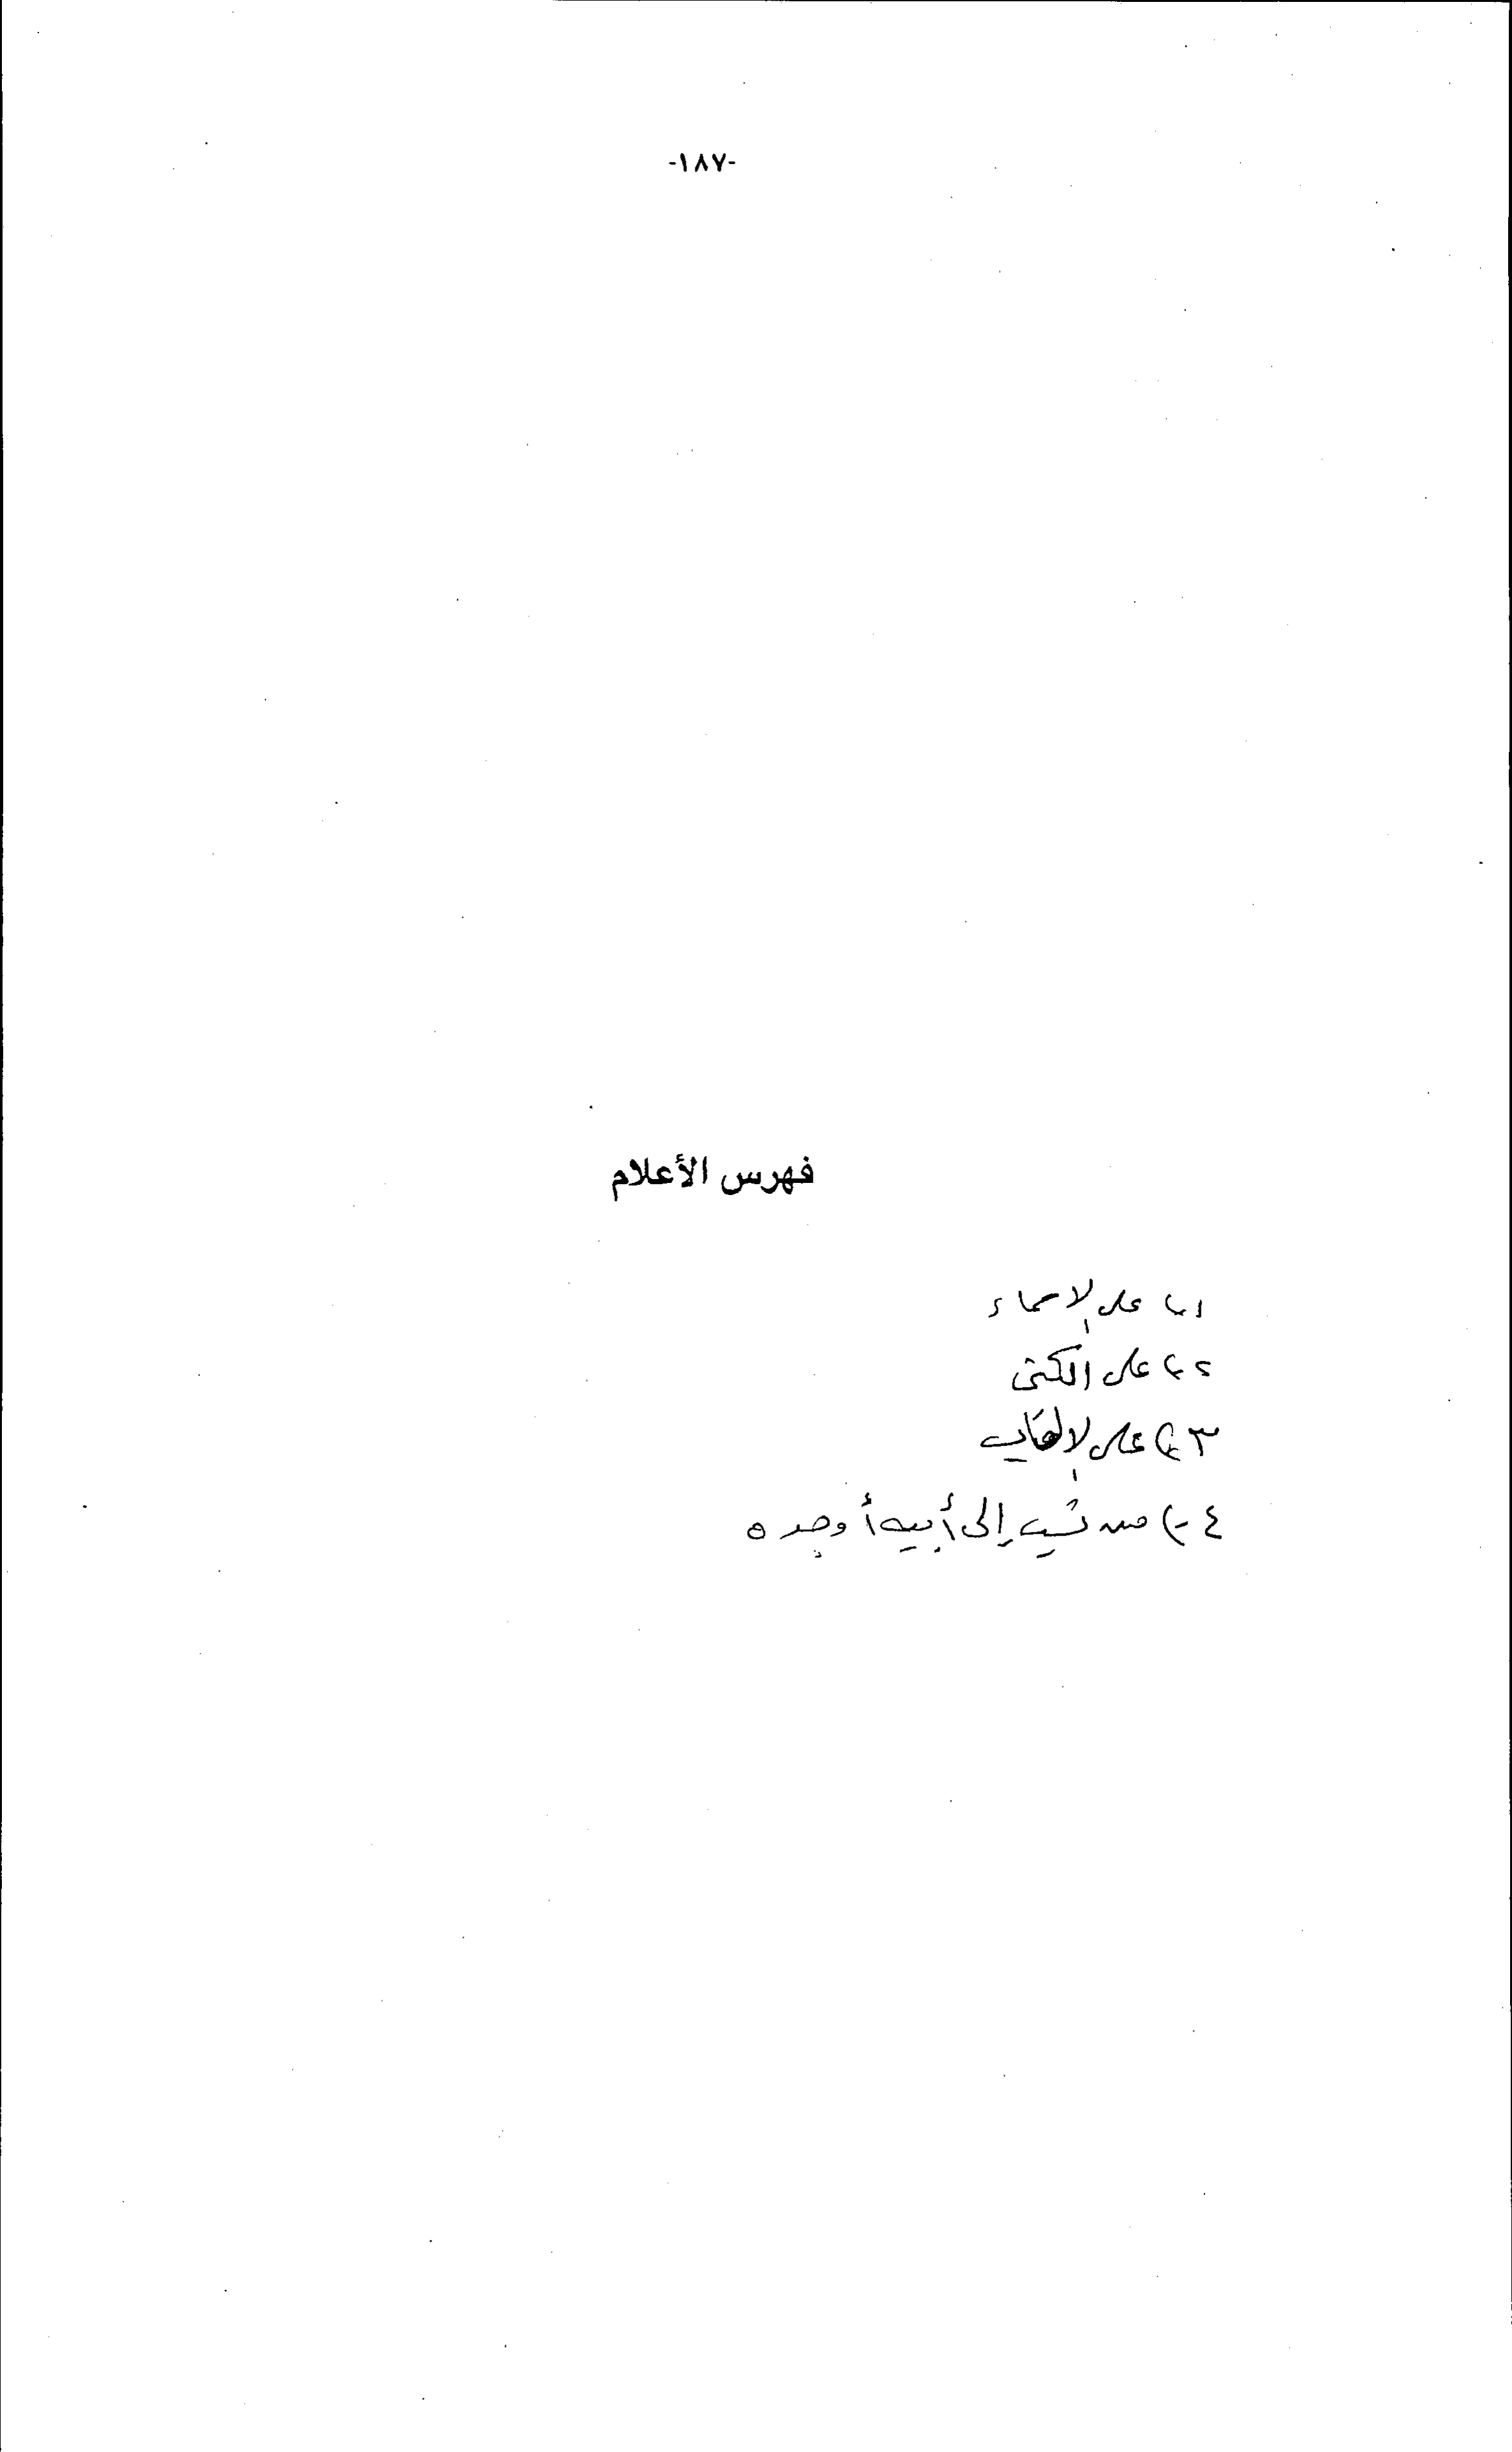 -١٨٧-
فهرس الأعلام
١-) على الأسماء
٢-) على الكنى
٣-) على الألقاب
٤-) من نسب إلى أبيه أو جده